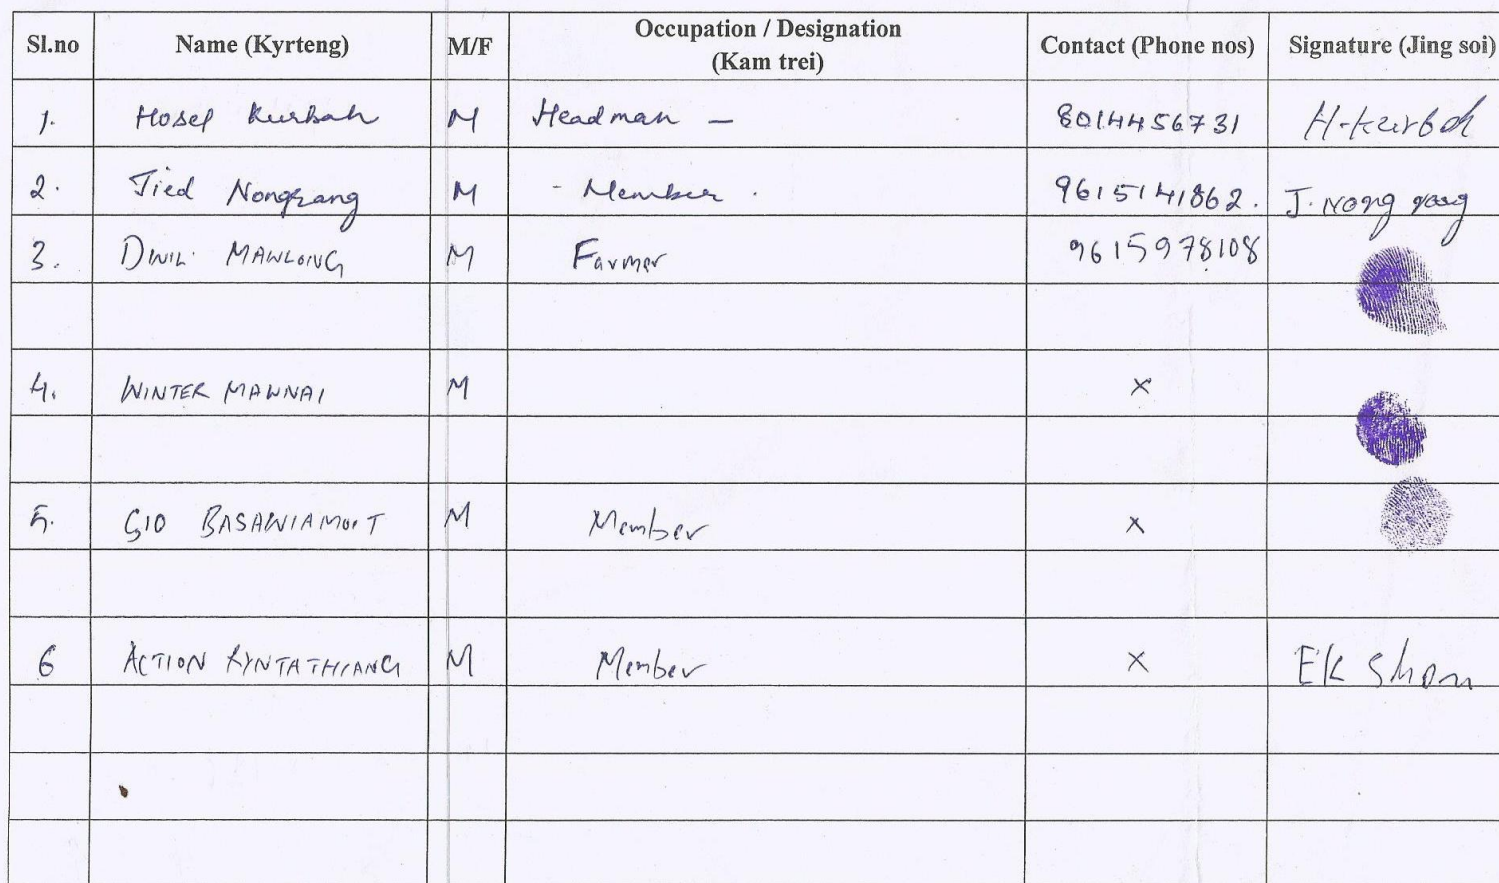 Sl.no Name (Kyrteng) M/F Occupation / Designation (Kam trei) Contact (Phone nos) Signature (Jing soi)
1. Hosep Kurbah M Headman - 8014456731 H-kurbah
2. Tied Nongrang M - Member . 9615141862. J. Nong rang
3. DWIL MAWLONG M Farmer 9615978108
4. WINTER MAWNAI M x
5. GIO BASAWIAMOIT M Member x
6 ACTION KYNTATHIANG M Member x EK Shon